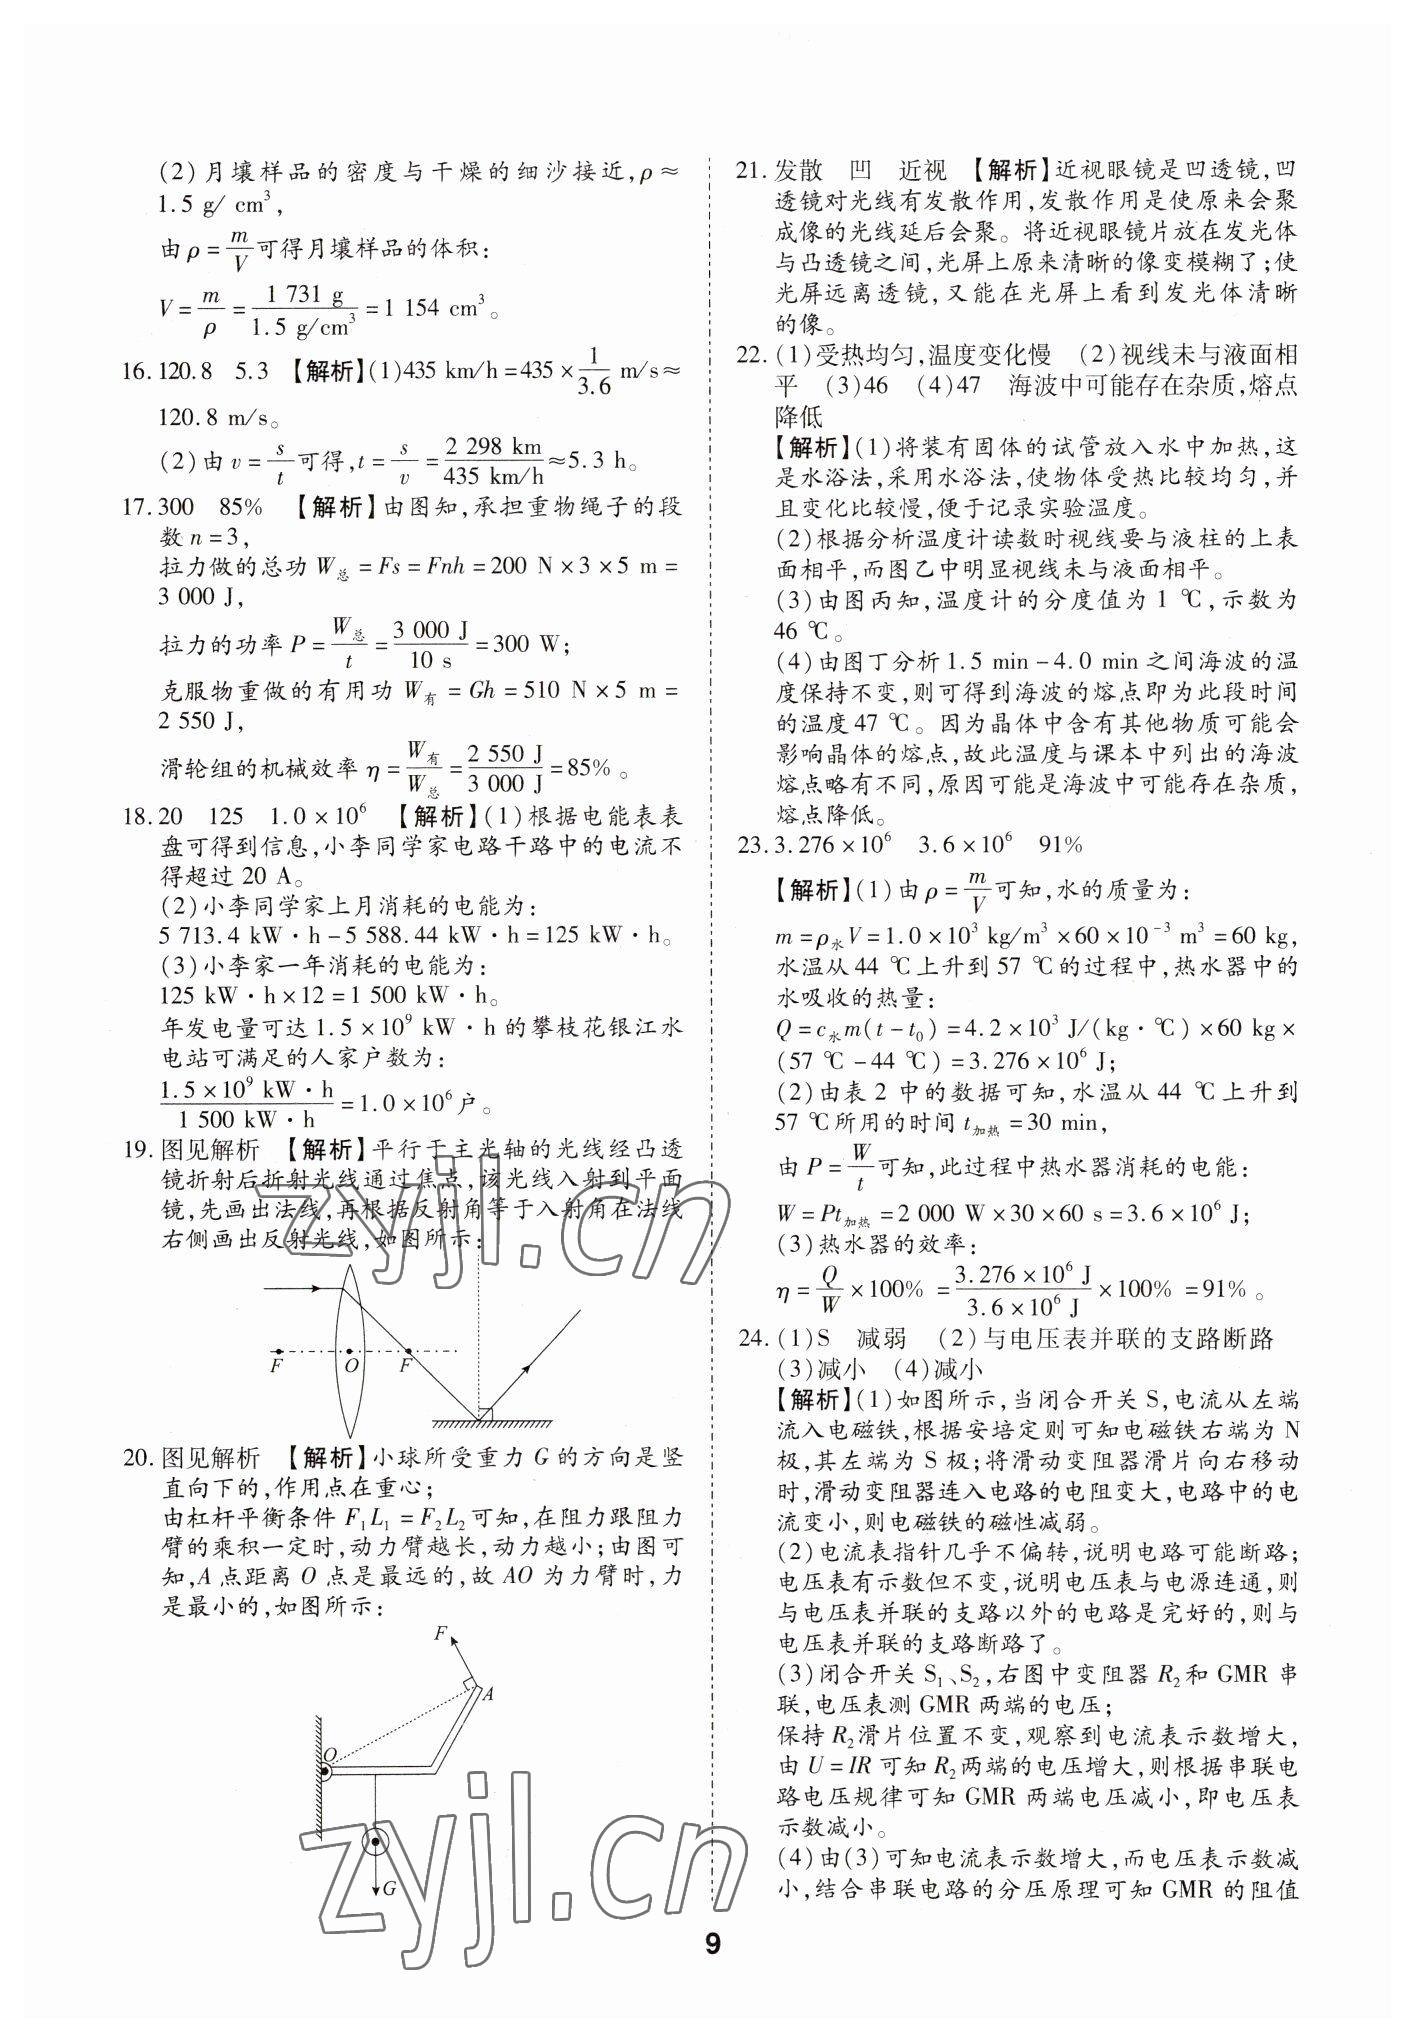 (2)月壤样品的密度与干燥的细沙接近,ρ≈
1.5 g/ cm³,
由 ρ = m/V 可得月壤样品的体积:
V = m/ρ = 1 731 g / 1.5 g/cm³ = 1 154 cm³。
16. 120.8 5.3 【解析】(1)435 km/h = 435 × 1/3.6 m/s≈
120.8 m/s。
(2)由 v = s/t 可得,t = s/v = 2 298 km / 435 km/h ≈5.3 h。
17. 300 85% 【解析】由图知,承担重物绳子的段
数 n = 3,
拉力做的总功 W总 = Fs = Fnh = 200 N × 3 × 5 m =
3 000 J,
拉力的功率 P = W总/t = 3 000 J / 10 s = 300 W;
克服物重做的有用功 W有 = Gh = 510 N × 5 m =
2 550 J,
滑轮组的机械效率 η = W有/W总 = 2 550 J / 3 000 J = 85% 。
18. 20 125 1.0 × 10⁶ 【解析】(1)根据电能表表
盘可得到信息,小李同学家电路干路中的电流不
得超过 20 A。
(2)小李同学家上月消耗的电能为:
5 713.4 kW·h - 5 588.44 kW·h = 125 kW·h。
(3)小李家一年消耗的电能为:
125 kW·h × 12 = 1 500 kW·h。
年发电量可达 1.5 × 10⁹ kW·h 的攀枝花银江水
电站可满足的人家户数为:
1.5 × 10⁹ kW·h / 1 500 kW·h = 1.0 × 10⁶ 户。
19. 图见解析 【解析】平行于主光轴的光线经凸透
镜折射后折射光线通过焦点,该光线入射到平面
镜,先画出法线,再根据反射角等于入射角在法线
右侧画出反射光线,如图所示:
F O F
20. 图见解析 【解析】小球所受重力 G 的方向是竖
直向下的,作用点在重心;
由杠杆平衡条件 F₁L₁ = F₂L₂ 可知,在阻力跟阻力
臂的乘积一定时,动力臂越长,动力越小;由图可
知,A 点距离 O 点是最远的,故 AO 为力臂时,力
是最小的,如图所示:
F
A
O
G
21. 发散 凹 近视 【解析】近视眼镜是凹透镜,凹
透镜对光线有发散作用,发散作用是使原来会聚
成像的光线延后会聚。将近视眼镜片放在发光体
与凸透镜之间,光屏上原来清晰的像变模糊了;使
光屏远离透镜,又能在光屏上看到发光体清晰
的像。
22. (1)受热均匀,温度变化慢 (2)视线未与液面相
平 (3)46 (4)47 海波中可能存在杂质,熔点
降低
【解析】(1)将装有固体的试管放入水中加热,这
是水浴法,采用水浴法,使物体受热比较均匀,并
且变化比较慢,便于记录实验温度。
(2)根据分析温度计读数时视线要与液柱的上表
面相平,而图乙中明显视线未与液面相平。
(3)由图丙知,温度计的分度值为 1 ℃,示数为
46 ℃。
(4)由图丁分析 1.5 min - 4.0 min 之间海波的温
度保持不变,则可得到海波的熔点即为此段时间
的温度 47 ℃。因为晶体中含有其他物质可能会
影响晶体的熔点,故此温度与课本中列出的海波
熔点略有不同,原因可能是海波中可能存在杂质,
熔点降低。
23. 3.276 × 10⁶ 3.6 × 10⁶ 91%
【解析】(1)由 ρ = m/V 可知,水的质量为:
m = ρ水V = 1.0 × 10³ kg/m³ × 60 × 10⁻³ m³ = 60 kg,
水温从 44 ℃上升到 57 ℃的过程中,热水器中的
水吸收的热量:
Q = c水m(t - t₀) = 4.2 × 10³ J/(kg·℃) × 60 kg ×
(57 ℃ - 44 ℃) = 3.276 × 10⁶ J;
(2)由表 2 中的数据可知,水温从 44 ℃上升到
57 ℃所用的时间 t加热 = 30 min,
由 P = W/t 可知,此过程中热水器消耗的电能:
W = Pt加热 = 2 000 W × 30 × 60 s = 3.6 × 10⁶ J;
(3)热水器的效率:
η = Q/W × 100% = 3.276 × 10⁶ J / 3.6 × 10⁶ J × 100% = 91% 。
24. (1)S 减弱 (2)与电压表并联的支路断路
(3)减小 (4)减小
【解析】(1)如图所示,当闭合开关 S,电流从左端
流入电磁铁,根据安培定则可知电磁铁右端为 N
极,其左端为 S 极;将滑动变阻器滑片向右移动
时,滑动变阻器连入电路的电阻变大,电路中的电
流变小,则电磁铁的磁性减弱。
(2)电流表指针几乎不偏转,说明电路可能断路;
电压表有示数但不变,说明电压表与电源连通,则
与电压表并联的支路以外的电路是完好的,则与
电压表并联的支路断路了。
(3)闭合开关 S₁、S₂,右图中变阻器 R₂和 GMR 串
联,电压表测 GMR 两端的电压;
保持 R₂滑片位置不变,观察到电流表示数增大,
由 U = IR 可知 R₂两端的电压增大,则根据串联电
路电压规律可知 GMR 两端电压减小,即电压表
示数减小。
(4)由(3)可知电流表示数增大,而电压表示数减
小,结合串联电路的分压原理可知 GMR 的阻值
9
zyjl.cn
zyjl.cn